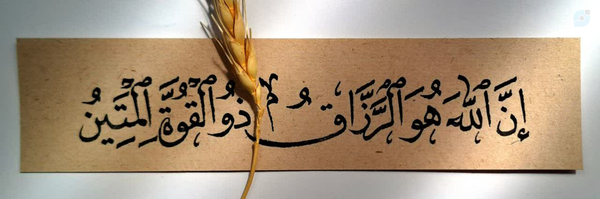 إِنَّ ٱللَّهَ هُوَ ٱلرَّزَّاقُ ذُو ٱلْقُوَّةِ ٱلْمَتِينُ